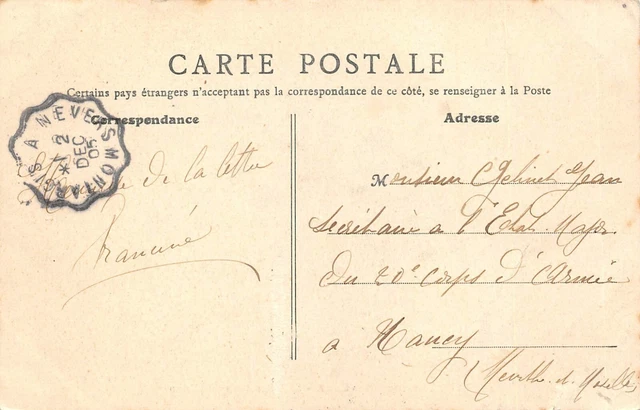 CARTE POSTALE
Certains pays étrangers n'acceptant pas la correspondance de ce côté, se renseigner à la Poste
Correspondance
Adresse
MONTARGIS A NEVERS
12
DEC
05
de la lettre
Francine
Monsieur Jean
Secrétaire a l'Etat Major
Du 20e Corps d'Armée
a Nancy
Meurthe et Moselle